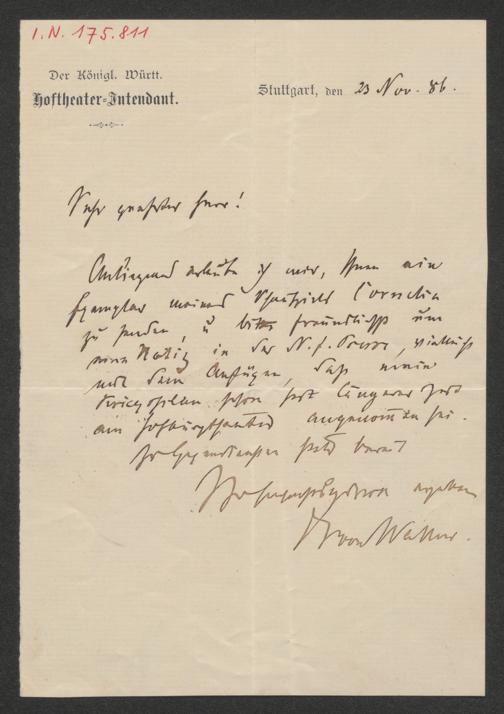 I.N. 175.811
Der Königl. Württ.
Hoftheater-Intendant.
Stuttgart, den 23 Nov. 86.
Sehr geehrter Herr!
Anliegend erlaube ich mir, Ihnen ein
Exemplar meines Schauspiels Cornelia
zu senden, u bitte freundlichst um
eine Notiz in der N. f. Presse, vielleicht
mit dem Anfügen, daß mein
schon seit längerer Zeit
am Hofburgtheater angenommen sei.
Zu Gegendiensten stets bereit
Ihr ergebener
von